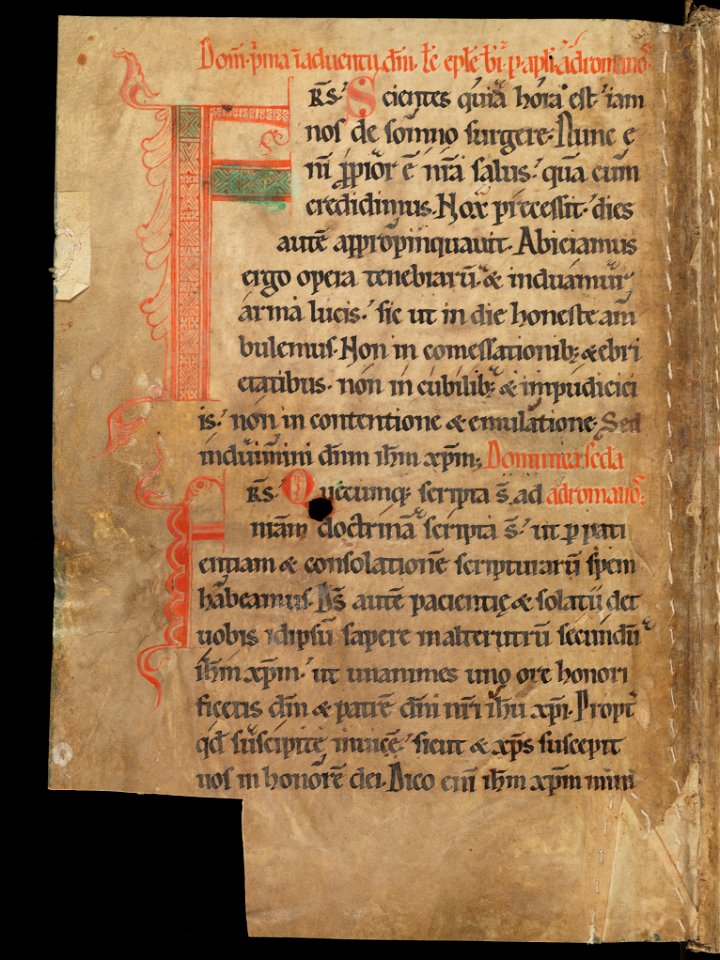 Dom̄ p̄ma ī aduentu dm̄ lc̄ epl̄e bī p apl̄i ad romanos
F R̄S. Scientes quia hora est iam
nos de somno surgere. Nunc e
ni p̄pior ē nr̄a salus. quā cum
credidimus. Nox precessit. dies
autē appropinquauit. Abiciamus
ergo opera tenebrarū & induamur
arma lucis. sic ut in die honeste am
bulemus. Non in comessationib; & ebri
etatibus. non in cubilib; & impudicici
is. non in contentione & emulatione. Sed
induimini dn̄m ih̄m xp̄m; Dominica sc̄da
F R̄S. Quecumq; scripta s̄. ad ad romanos;
niam doctrinā scripta s̄. ut p pati
entiam & consolationē scripturarū spem
habeamus. Ds̄ autē pacientię & solatii det
uobis idipsū sapere in alterutrū secundū
ih̄m xp̄m. ut unanimes uno ore honori
ficetis dm̄ & patrē dn̄i nr̄i ih̄u xp̄i. Propt̄
qd̄ suscipite inuicē. sicut & xp̄s suscepit
uos in honorē dei. Dico eni ih̄m xp̄m mini